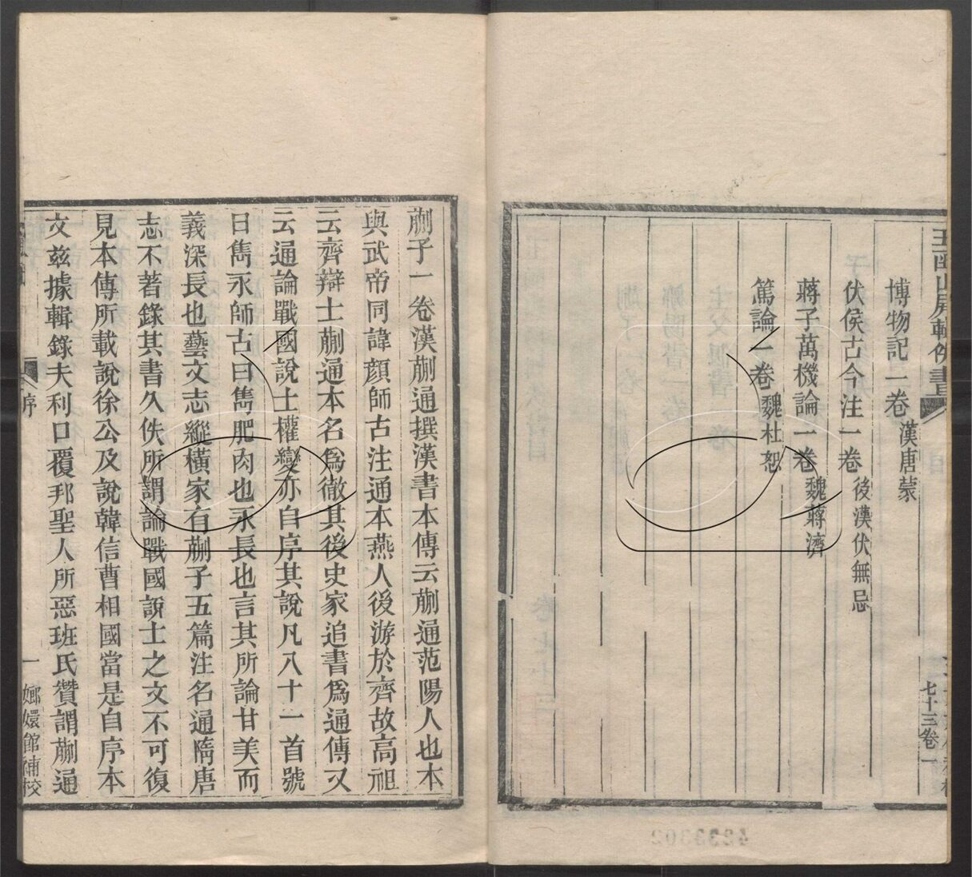 玉函山房輯佚書
七十三卷一
博物記一卷漢唐蒙
伏侯古今注一卷後漢伏無忌
蔣子萬機論一卷魏蔣濟
篤論一卷魏杜恕
蒯子一卷漢蒯通撰漢書本傳云蒯通范陽人也本
與武帝同諱顏師古注通本燕人後游於齊故高祖
云齊辯士蒯通本名爲徹其後史家追書爲通傳又
云通論戰國說士權變亦自序其說凡八十一首號
曰雋永師古曰雋肥肉也永長也言其所論甘美而
義深長也藝文志縱橫家有蒯子五篇注名通隋唐
志不著錄其書久佚所謂論戰國說士之文不可復
見本傳所載說徐公及說韓信曹相國當是自序本
文兹據輯錄夫利口覆邦聖人所惡班氏贊謂蒯通
序
一
嫏嬛館補校
4233302